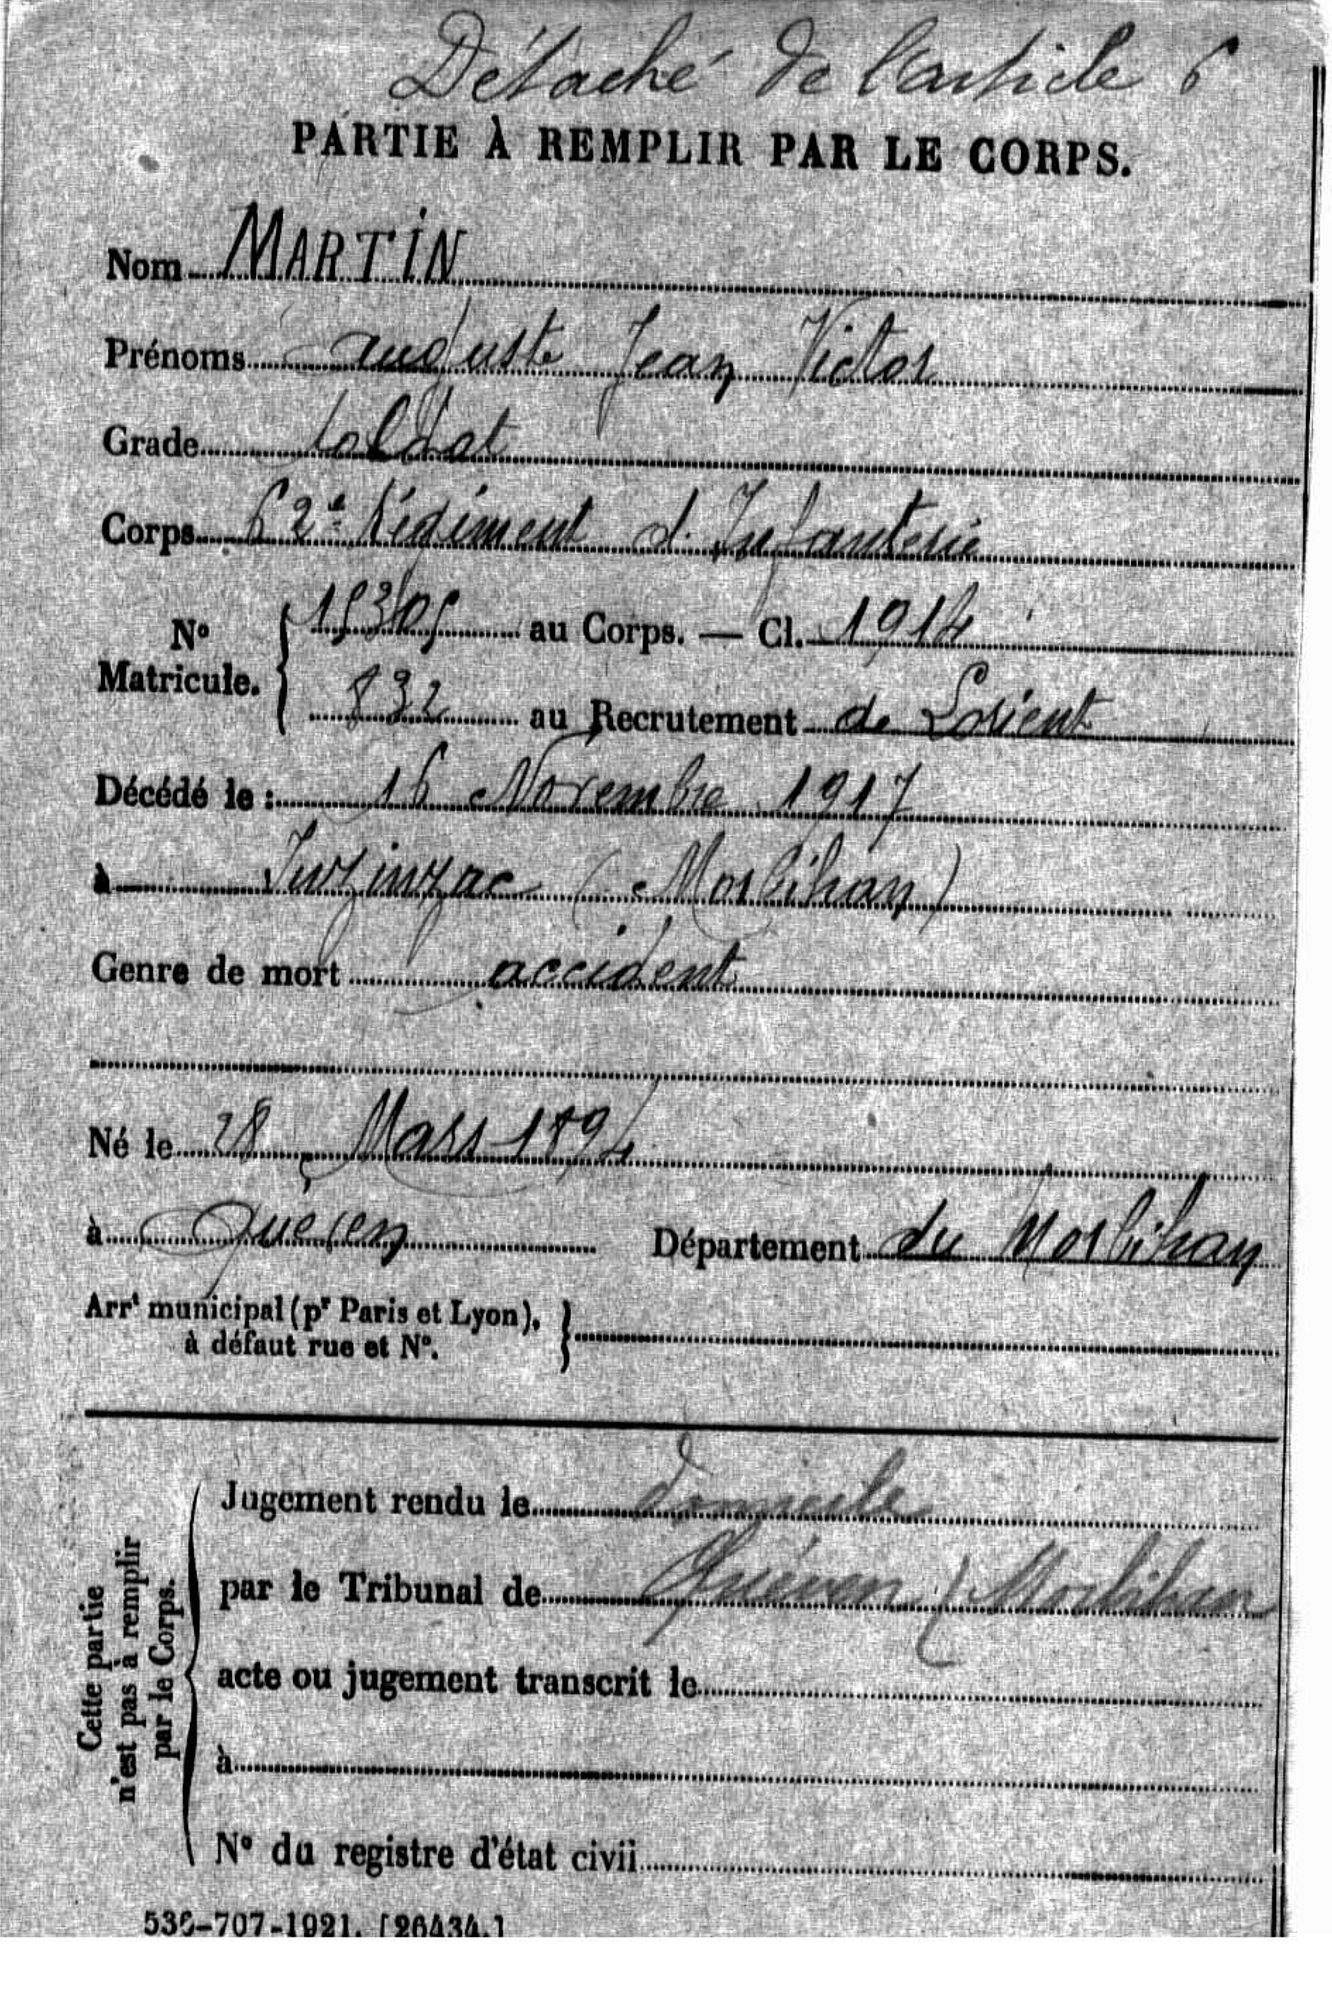 Détaché de l'article 6
PARTIE À REMPLIR PAR LE CORPS.
Nom MARTIN
Prénoms Auguste Jean Victor
Grade Soldat
Corps 62e Régiment d. Infanterie
No Matricule. { 15305 au Corps. — Cl. 1914
832 au Recrutement de Lorient
Décédé le : 16 Novembre 1917
à Inzinzac (Morbihan)
Genre de mort accident
Né le 28 Mars 1894
à Quéven Département du Morbihan
Arrt municipal (pr Paris et Lyon), }
à défaut rue et No.
Cette partie
n'est pas à remplir
par le Corps.
Jugement rendu le domicile
par le Tribunal de Quéven (Morbihan
acte ou jugement transcrit le
à
No du registre d'état civil
536-707-1921. [26434.]